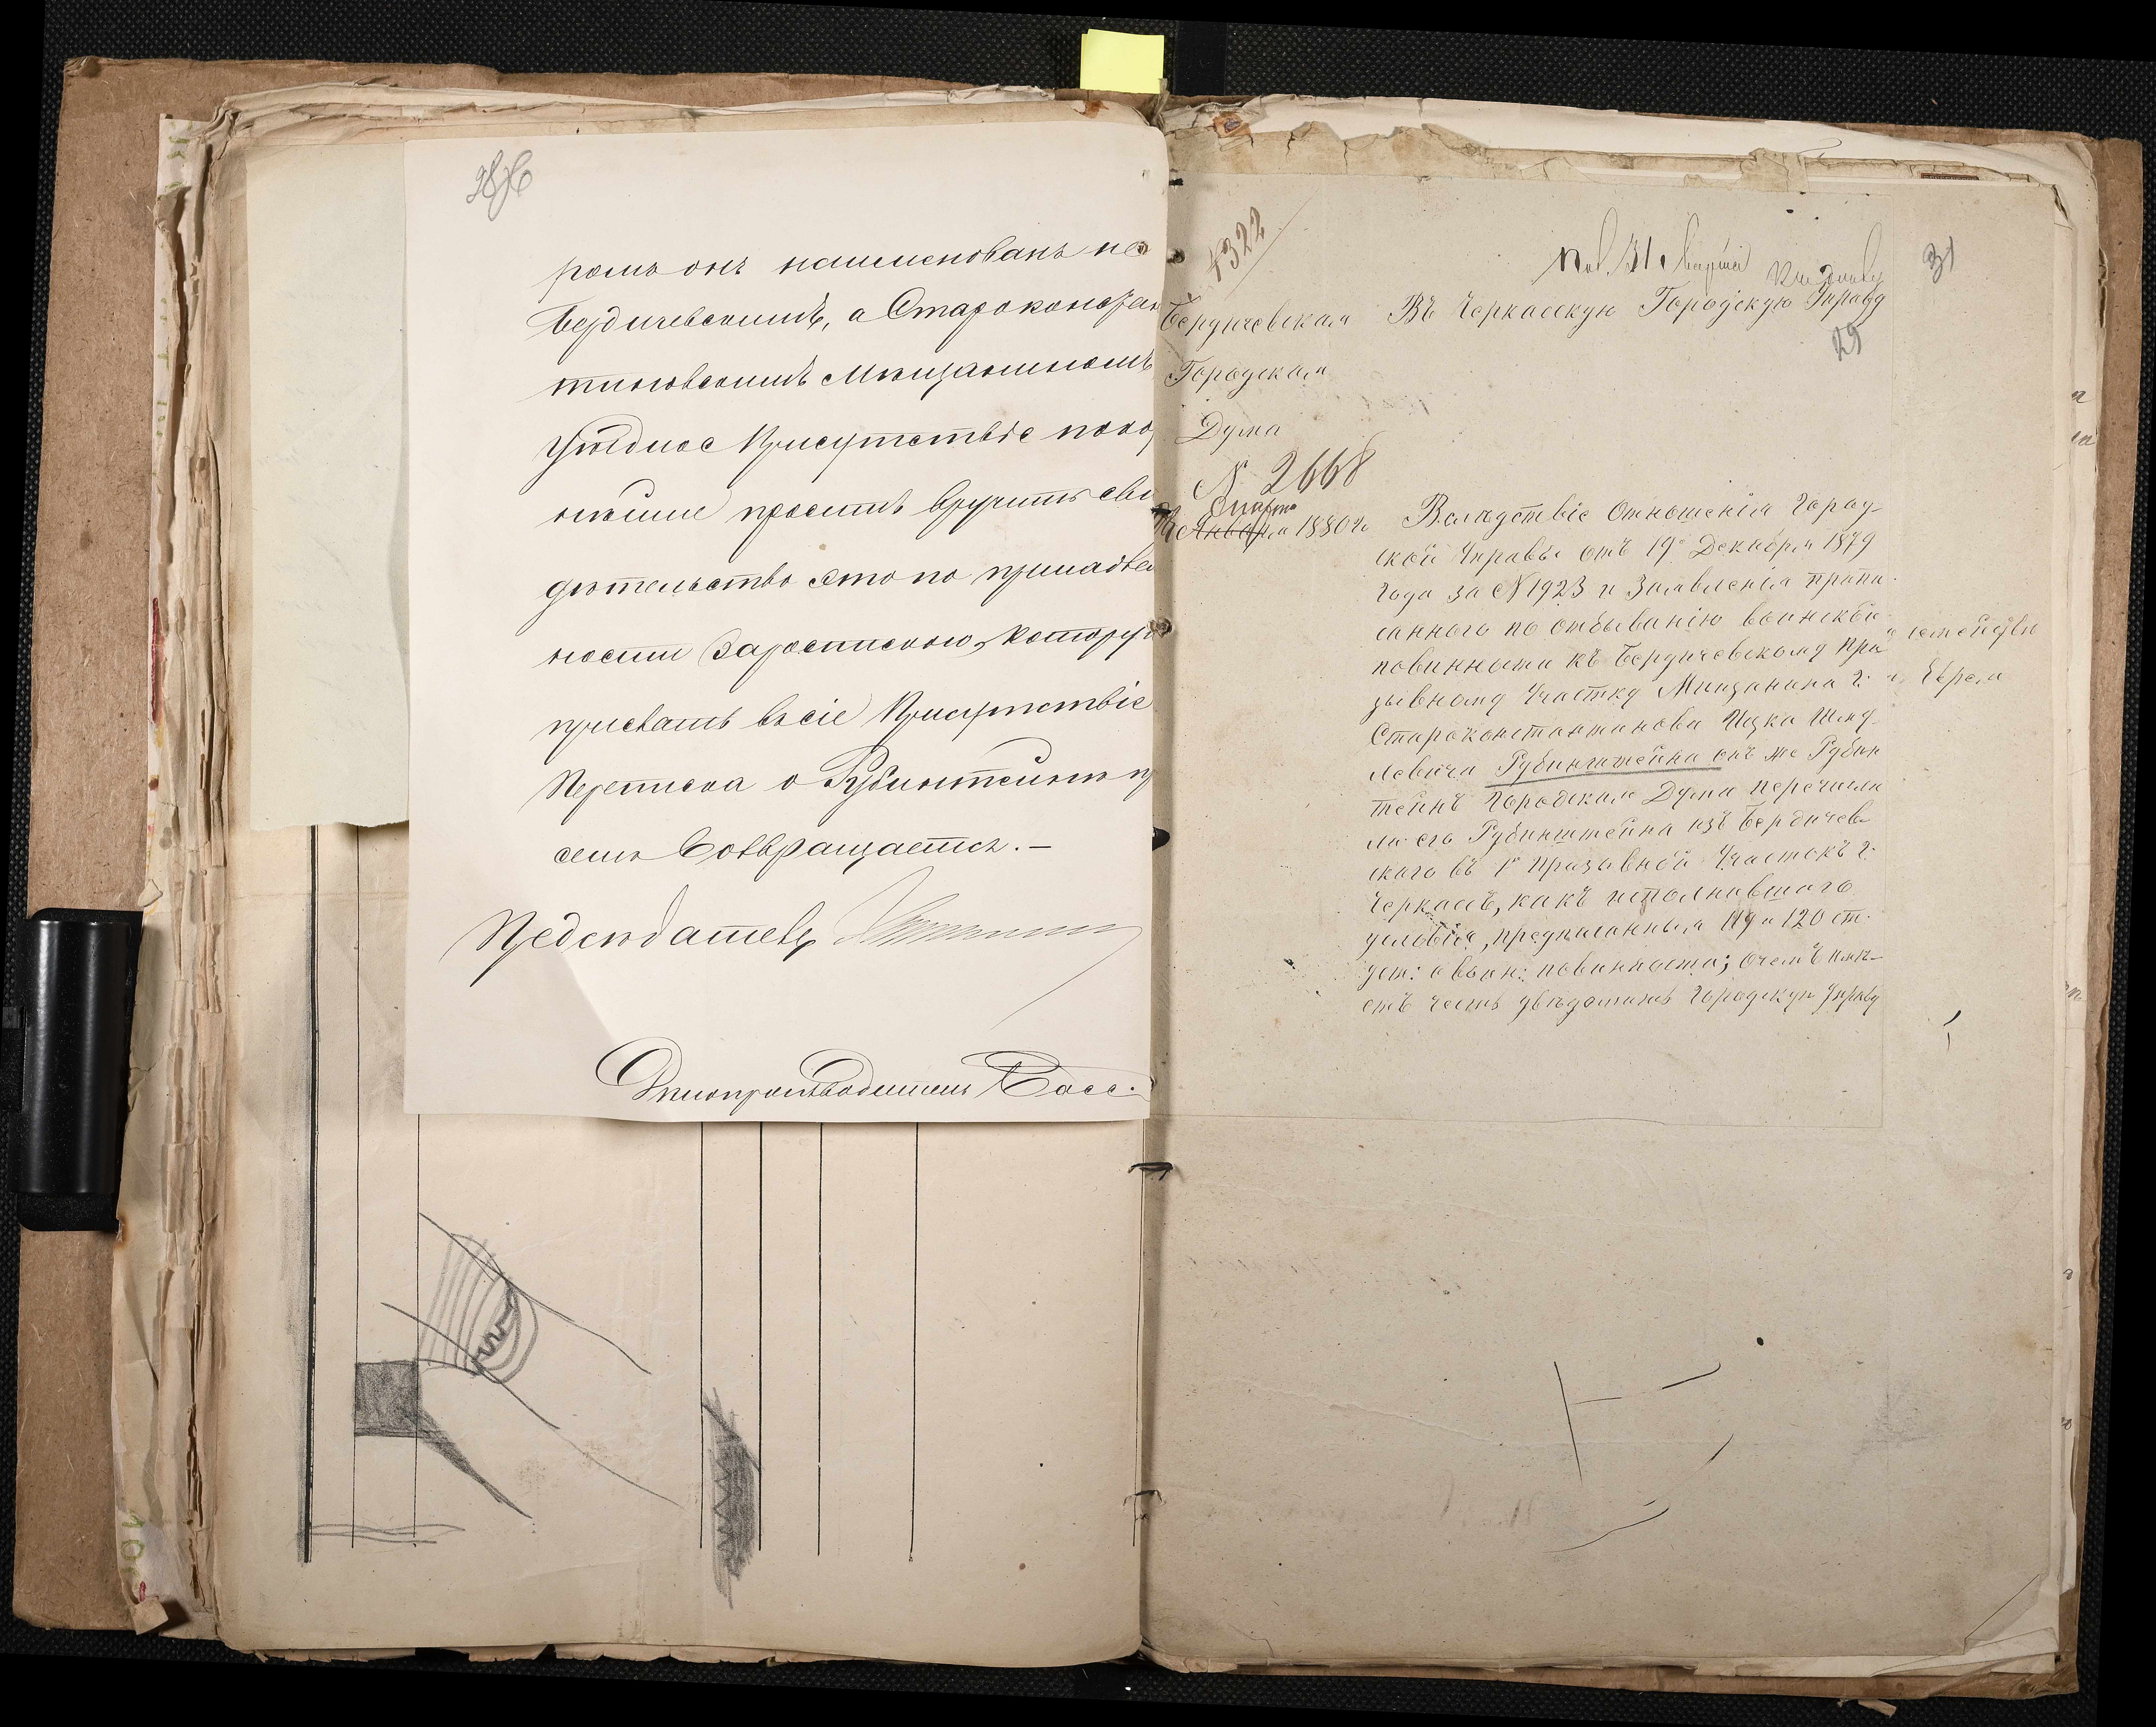 ромъ онъ наименованъ не
Бердичевскимъ, а Старокостан
тиновскимъ Мѣщаниномъ
Уѣздное Присутствіе покор
нѣйше проситъ вручить сви
дѣтельство это по принадле
ности зароспискою, которую
прислать въ сіе Присутствіе
Переписка о Рубинтейнѣ пр
семъ возвращается. —
Предсѣдатель
Дѣлопроизводитель
4322
Бердичевская
Городская
Дума
№ 2668
Марта
Января 1880 г.
Пол. 31 Марта
31
Въ Черкасскую Городскую Управу
29
Вслѣдствіе Отношенія Город-
ской Управы отъ 19го Декабря 1879
года за № 1923 и Заявленія припи-
саннаго по отбыванію воинской
повинности къ Бердичевскому при
зывному Участку Мѣщанина г.
Староконстантинова Ицка Шму-
левича Рубинштейна онъ же Рубин
тейнъ Городская Дума перечисли
ла его Рубинштейна изъ Бердичев-
скаго въ 1й Призывной Участокъ г.
Черкасъ, какъ исполнившаго
условія, предписанныя 119 и 120 ст.
уст: о воин: повинности; о чемъ имѣ-
етъ честь увѣдомить Городскую Управу
Еврея